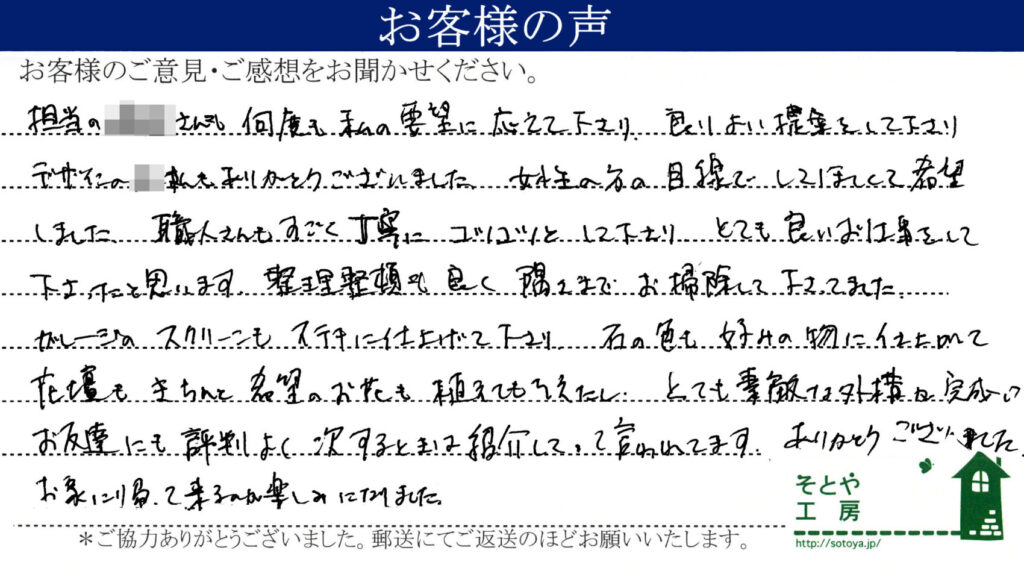 お客様の声
お客様のご意見・ご感想をお聞かせください。
担当の さんも 何度も 私の要望に 応えて下さり、良りよい提案をして下さり
デザインの さんもありがとうございました。女性の方の目線でしてほしくて希望
しました。職人さんもすごく丁寧に コツコツと して下さり とても良いお仕事をして
下さったと思います。整理整頓も良く 隅々まで お掃除して下さってました。
ガレージの スクリーンも ステキに仕上げて下さり 石の色も 好みの物に仕上がって
花壇も きちんと 希望のお花も 植えてもらえたし とても素敵な外構が完成い
お友達にも 評判よく 次するときは紹介してって言われてます。ありがとうございました
お家に帰って来るのが楽しみになりました。
そとや
工房
http://sotoya.jp/
*ご協力ありがとうございました。郵送にてご返送のほどお願いいたします。